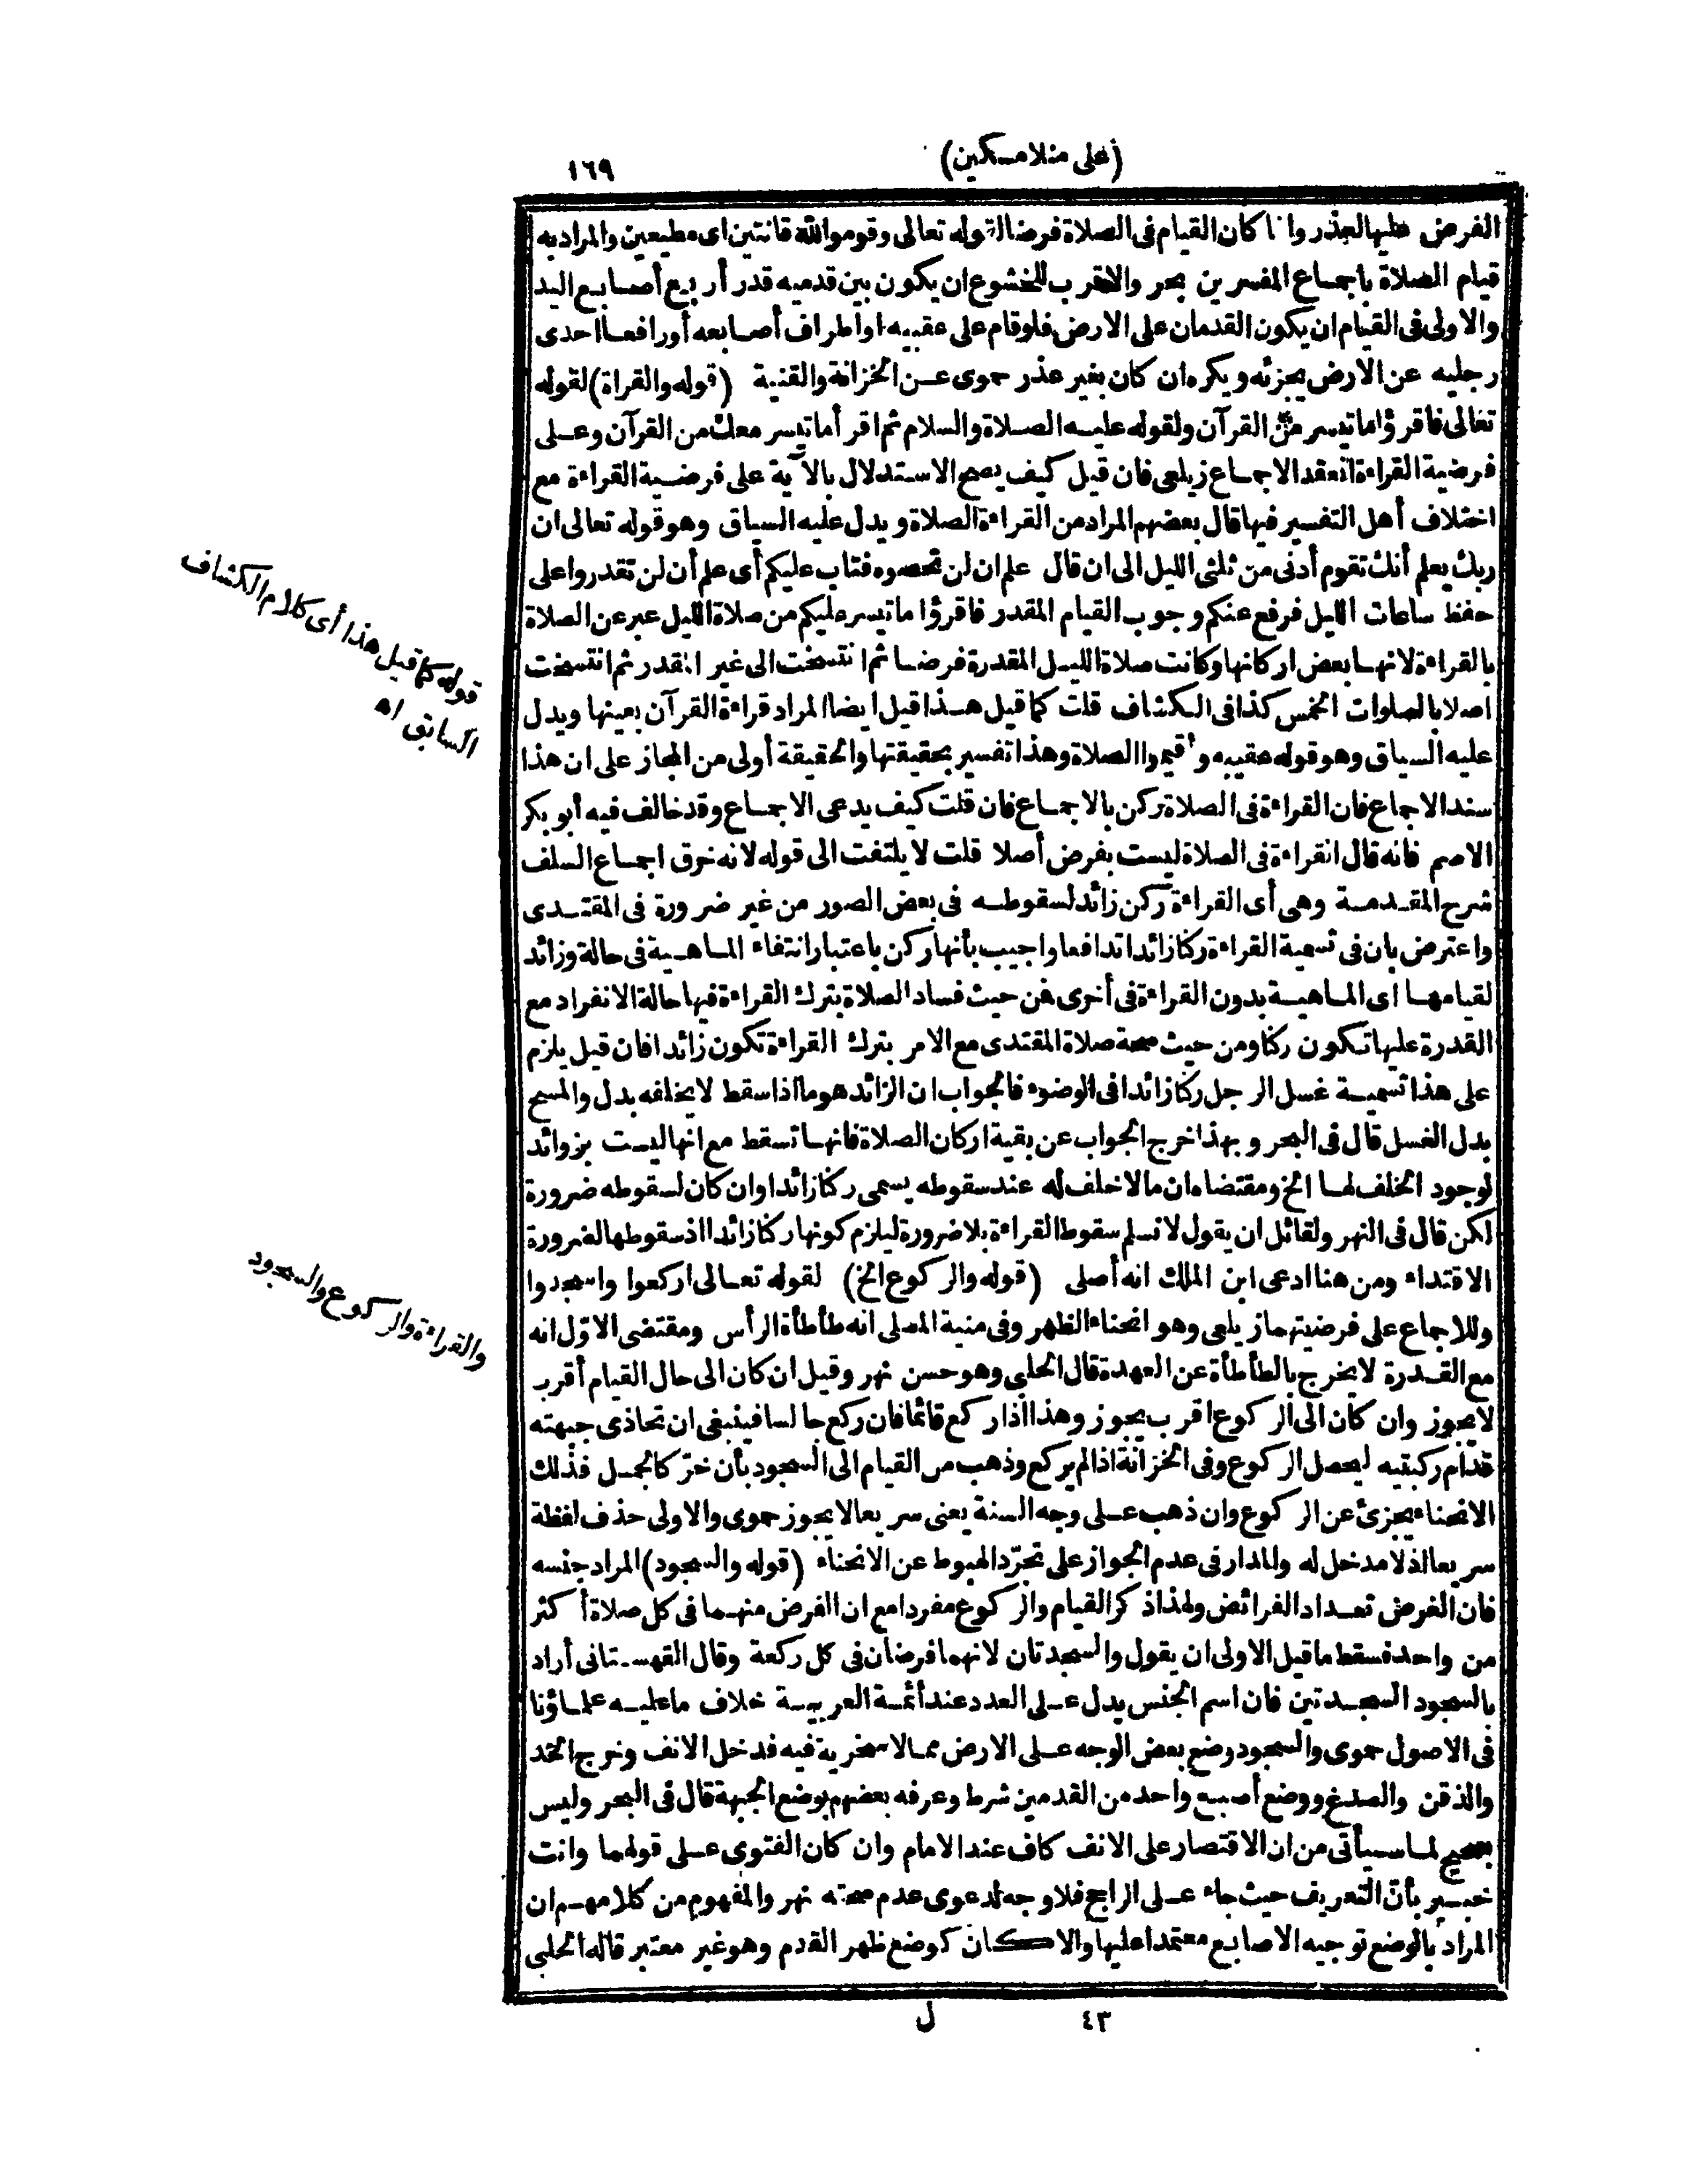 (على منلا مسكين)
١٦٩
الفرض عليها لعذر وانما كان القيام فى الصلاة فرضا لقوله تعالى وقوموا لله قانتين اى مطيعين والمراد به
قيام الصلاة باجماع المفسرين بحر والاقرب للخشوع ان يكون بين قدميه قدر أربع أصابع اليد
والاولى فى القيام ان يكون القدمان على الارض فلو قام على عقبيه او اطراف أصابعه أو رافعا احدى
رجليه عن الارض يجزئه ويكره ان كان بغير عذر حموى عن الخزانة والقنية (قوله والقراة) لقوله
تعالى فاقرؤا ما تيسر من القرآن ولقوله عليه الصلاة والسلام ثم اقرأ ما تيسر معك من القرآن وعلى
فرضية القراءة انعقد الاجماع زيلعى فان قيل كيف يصح الاستدلال بالآية على فرضية القراءة مع
اختلاف أهل التفسير فيها قال بعضهم المراد من القراءة الصلاة ويدل عليه السياق وهو قوله تعالى ان
ربك يعلم أنك تقوم أدنى من ثلثى الليل الى ان قال علم ان لن تحصوه فتاب عليكم أى علم أن لن تقدروا على
حفظ ساعات الليل فرفع عنكم وجوب القيام المقدر فاقرؤا ما تيسر عليكم من صلاة الليل عبر عن الصلاة
بالقراءة لانها بعض اركانها وكانت صلاة الليل المقدرة فرضا ثم انتسخت الى غير المقدر ثم انتسخت
اصلا بالصلوات الخمس كذا فى الكشاف قلت كما قيل هذا قيل ايضا المراد قراءة القرآن بعينها ويدل
عليه السياق وهو قوله عقيبه وأقيموا الصلاة وهذا تفسير بحقيقتها والحقيقة أولى من المجاز على ان هذا
سند الاجماع فان القراءة فى الصلاة ركن بالاجماع فان قلت كيف يدعى الاجماع وقد خالف فيه أبو بكر
الاصم فانه قال القراءة فى الصلاة ليست بفرض أصلا قلت لا يلتفت الى قوله لانه خرق اجماع السلف
شرح المقدمة وهى أى القراءة ركن زائد لسقوطه فى بعض الصور من غير ضرورة فى المقتدى
واعترض بان فى تسمية القراءة ركنا زائدا تدافعا واجيب بأنها ركن باعتبار انتفاء الماهية فى حالة وزائد
لقيامها اى الماهية بدون القراءة فى أخرى فمن حيث فساد الصلاة بترك القراءة فيها حالة الانفراد مع
القدرة عليها تكون ركنا ومن حيث صحة صلاة المقتدى مع الامر بترك القراءة تكون زائدا فان قيل يلزم
على هذا تسمية غسل الرجل ركنا زائدا فى الوضوء فالجواب ان الزائد هو ما اذا سقط لا يخلفه بدل والمسح
بدل الغسل قال فى البحر وبهذا خرج الجواب عن بقية اركان الصلاة فانها تسقط مع انها ليست بزوائد
لوجود الخلف لها الخ ومقتضاه ان ما لا خلف له عند سقوطه يسمى ركنا زائدا وان كان لسقوطه ضرورة
لكن قال فى النهر ولقائل ان يقول لا نسلم سقوط القراءة بلا ضرورة ليلزم كونها ركنا زائدا اذ سقوطها لضرورة
الاقتداء ومن هنا ادعى ابن الملك انه أصلى (قوله والركوع الخ) لقوله تعالى اركعوا واسجدوا
وللاجماع على فرضيتهما زيلعى وهو انحناء الظهر وفى منية المصلى انه طأطأة الرأس ومقتضى الاوّل انه
مع القدرة لا يخرج بالطأطأة عن العهدة قال الحلبى وهو حسن نهر وقيل ان كان الى حال القيام أقرب
لا يجوز وان كان الى الركوع اقرب يجوز وهذا اذا ركع قائما فان ركع جالسا فينبغى ان تحاذى جبهته
قدّام ركبتيه ليحصل الركوع وفى الخزانة اذا لم يركع وذهب من القيام الى السجود بأن خرّ كالجمل فذلك
الانحناء يجزئ عن الركوع وان ذهب على وجه السنة يعنى سريعا لا يجوز حموى والاولى حذف لفظة
سريعا اذ لا مدخل له والمدار فى عدم الجواز على تجرّد الهبوط عن الانحناء (قوله والسجود) المراد جنسه
فان الغرض تعداد الفرائض ولهذا ذكر القيام والركوع مفردا مع ان الفرض منهما فى كل صلاة أكثر
من واحد فسقط ما قيل الاولى ان يقول والسجدتان لانهما فرضان فى كل ركعة وقال القهستانى أراد
بالسجود السجدتين فان اسم الجنس يدل على العدد عند أئمة العربية خلاف ما عليه علماؤنا
فى الاصول حموى والسجود وضع بعض الوجه على الارض مما لا سخرية فيه فدخل الانف وخرج الخد
والذقن والصدغ ووضع أصبع واحد من القدمين شرط وعرفه بعضهم بوضع الجبهة قال فى البحر وليس
بصحيح لما سيأتى من ان الاقتصار على الانف كاف عند الامام وان كان الفتوى على قولهما وانت
خبير بأنّ التعريف حيث جاء على الراجح فلا وجه لدعوى عدم صحته نهر والمفهوم من كلامهم ان
المراد بالوضع توجيه الاصابع معتمدا عليها والا كان كوضع ظهر القدم وهو غير معتبر قاله الحلبى
قوله كما قيل هذا أى كلام الكشاف
السابق اه
والقراءة والركوع والسجود
٤٣
ل